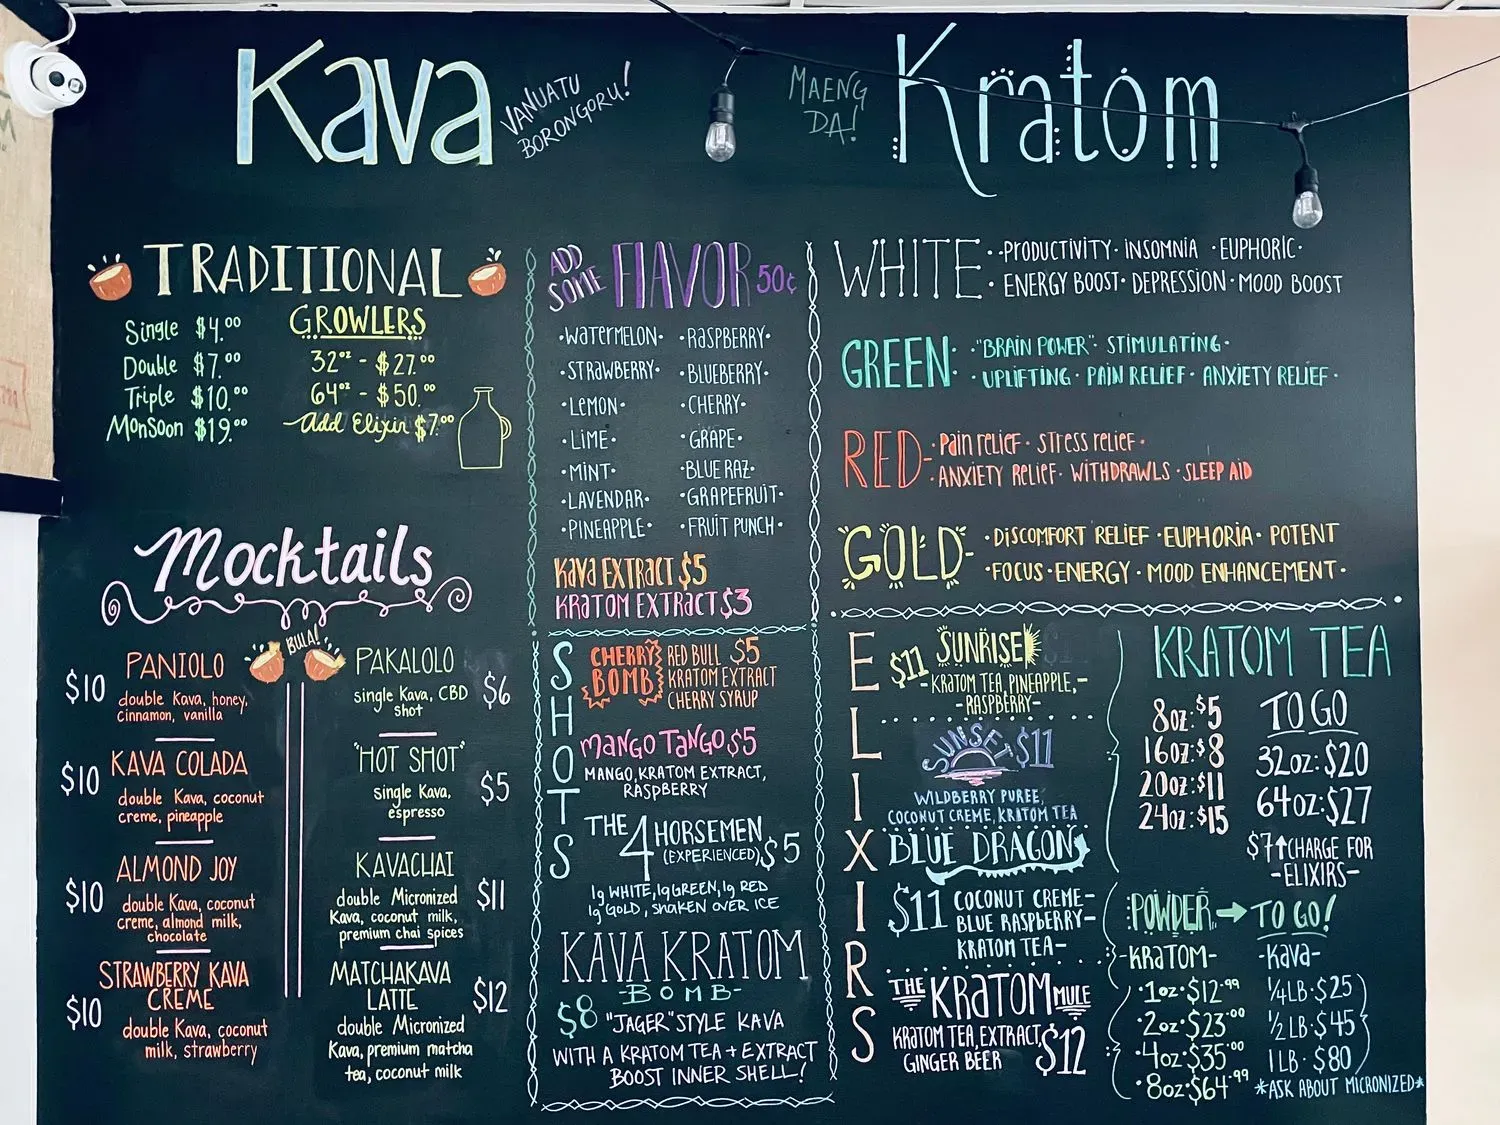 Kava
VANUATU
BORONGORU!
MAENG
DA!
Kratom
TRADITIONAL
Single $4.00
Double $7.00
Triple $10.00
MonSoon $19.00
GROWLERS
32oz - $27.00
64oz - $50.00
Add Elixir $7.00
Mocktails
BULA!
$10 PANIOLO
double Kava, honey,
cinnamon, vanilla
$10 KAVA COLADA
double Kava, coconut
creme, pineapple
$10 ALMOND JOY
double Kava, coconut
creme, almond milk,
chocolate
$10 STRAWBERRY KAVA
CREME
double Kava, coconut
milk, strawberry
PAKALOLO $6
single Kava, CBD
shot
"HOT SHOT" $5
single Kava,
espresso
KAVACHAI $11
double Micronized
Kava, coconut milk,
premium chai spices
MATCHAKAVA
LATTE $12
double Micronized
Kava, premium matcha
tea, coconut milk
ADD
SOME FLAVOR 50¢
·WATERMELON· ·RASPBERRY·
·STRAWBERRY· ·BLUEBERRY·
·LEMON· ·CHERRY·
·LIME· ·GRAPE·
·MINT· ·BLUE RAZ·
·LAVENDAR· ·GRAPEFRUIT·
·PINEAPPLE· ·FRUIT PUNCH·
KAVA EXTRACT $5
KRATOM EXTRACT $3
SHOTS
CHERRY
BOMB
RED BULL $5
KRATOM EXTRACT
CHERRY SYRUP
MANGO TANGO $5
MANGO, KRATOM EXTRACT,
RASPBERRY
THE 4 HORSEMEN
(EXPERIENCED) $5
1g WHITE, 1g GREEN, 1g RED
1g GOLD, SHAKEN OVER ICE
KAVA KRATOM
-BOMB-
$8 "JAGER" STYLE KAVA
WITH A KRATOM TEA + EXTRACT
BOOST INNER SHELL!
WHITE: ·PRODUCTIVITY· INSOMNIA ·EUPHORIC·
·ENERGY BOOST· DEPRESSION· MOOD BOOST
GREEN: ·"BRAIN POWER"· STIMULATING·
·UPLIFTING· PAIN RELIEF· ANXIETY RELIEF·
RED- ·PAIN RELIEF· STRESS RELIEF·
·ANXIETY RELIEF· WITHDRAWLS ·SLEEP AID
GOLD- ·DISCOMFORT RELIEF ·EUPHORIA· POTENT
·FOCUS· ENERGY· MOOD ENHANCEMENT·
ELIXIRS
$11 SUNRISE
-KRATOM TEA, PINEAPPLE,-
-RASPBERRY-
SUNSET $11
WILDBERRY PUREE,
COCONUT CREME, KRATOM TEA
BLUE DRAGON
$11 COCONUT CREME-
BLUE RASPBERRY-
KRATOM TEA-
THE KRATOM MULE
KRATOM TEA, EXTRACT,
GINGER BEER $12
KRATOM TEA
8oz: $5
16oz: $8
20oz: $11
24oz: $15
TO GO
32oz: $20
64oz: $27
$7↑CHARGE FOR
-ELIXIRS-
POWDER → TO GO!
-KRATOM-
·1oz·$12.99
·2oz·$23.00
·4oz·$35.00
·8oz·$64.99
-Kava-
1/4 LB·$25
1/2 LB·$45
1 LB·$80
*ASK ABOUT MICRONIZED*